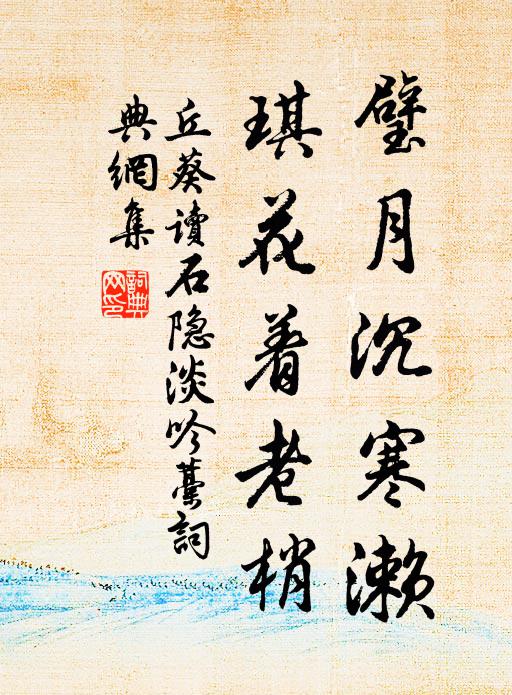 璧月沉寒濑
琪花着老梢
丘葵读石隐淡吟藁詞
典網集
詞典網印